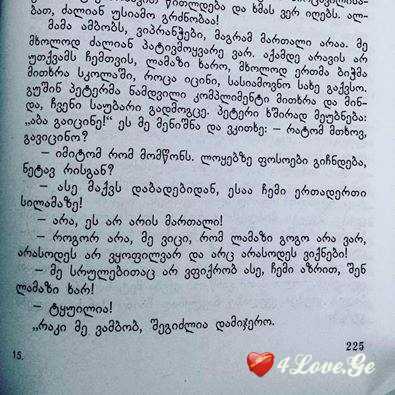 წითლდება და ხმას ვერ იღებს. ალ-
ბათ, ძალიან უსიამო გრძნობაა!
მამა ამბობს, ვიპრანჭები, მაგრამ მართალი არაა. მე
მხოლოდ ძალიან პატივმოყვარე ვარ. აქამდე არავის არ
უთქვამს ჩემთვის, ლამაზი ხარო, მხოლოდ ერთმა ბიჭმა
მითხრა სკოლაში, როცა იცინი, სასიამოვნო სახე გაქვსო.
გუშინ პეტერმა ნამდვილი კომპლიმენტი მითხრა და მინ-
და, ჩვენი საუბარი გადმოგცე. პეტერი ხშირად მეუბნება:
„აბა გაიცინე!“ ეს მე მენიშნა და ვკითხე: – რატომ მთხოვ,
გავიცინო?
– იმიტომ რომ მომწონს. ლოყებზე ფოსოები გიჩნდება,
ნეტავ რისგან?
– ასე მაქვს დაბადებიდან, ესაა ჩემი ერთადერთი
სილამაზე!
– არა, ეს არ არის მართალი!
– როგორ არა, მე ვიცი, რომ ლამაზი გოგო არა ვარ,
არასოდეს არ ვყოფილვარ და არც არასოდეს ვიქნები!
– მე სრულებითაც არ ვფიქრობ ასე, ჩემი აზრით, შენ
ლამაზი ხარ!
– ტყუილია!
„რაკი მე ვამბობ, შეგიძლია დამიჯერო.
15.
225
4Love.Ge